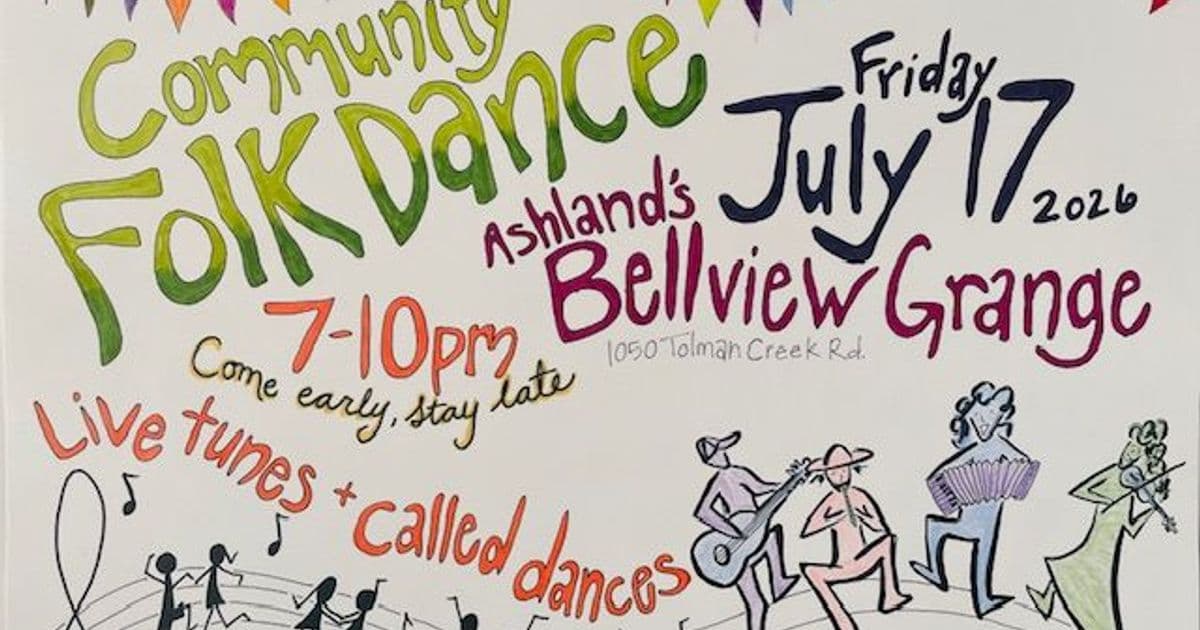 Community
Folk Dance
Friday
July 17
2026
Ashland's
Bellview Grange
1050 Tolman Creek Rd.
7-10pm
Come early, stay late
Live tunes + called dances